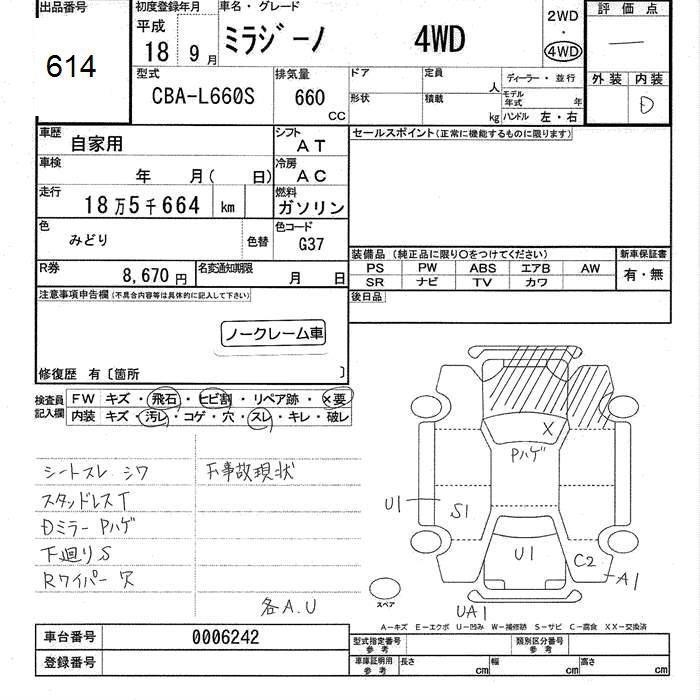 出品番号
614
初度登録年月
平成
18 9月
車名・グレード
ミラジーノ 4WD
2WD
・
4WD
評価点
—
外装 内装
D
型式
CBA-L660S
排気量
660
CC
ドア
定員
人
形状
積載
kg
ディーラー・並行
モデル年式 年
ハンドル 左・右
車歴
自家用
シフト
AT
車検
年 月( 日)
冷房
AC
走行
18万5千664 km
燃料
ガソリン
色
みどり
色替
色コード
G37
R券
8,670円
名変通知期限
月 日
セールスポイント(正常に機能するものに限ります)
装備品 (純正品に限り○をつけてください)
PS PW ABS エアB AW
SR ナビ TV カワ
新車保証書
有・無
後日品
注意事項申告欄(不具合内容等は具体的に記入して下さい)
ノークレーム車
修復歴 有〔箇所 〕
検査員記入欄
FW キズ・飛石・ヒビ割・リペア跡・×要
内装 キズ・汚レ・コゲ・穴・スレ・キレ・破レ
シートスレ シワ
スタッドレスT
Dミラー Pハゲ
下廻りS
Rワイパー欠
事故現状
各A.U
X
Pハゲ
U1
S1
U1
C2
A1
UA1
スペア
A−キズ E−エクボ U−凹み W−補修跡 S−サビ C−腐食 XX−交換済
車台番号
0006242
登録番号
型式指定番号
参考
類別区分番号
参考
車庫証明用
参考
長さ cm
幅 cm
高さ cm